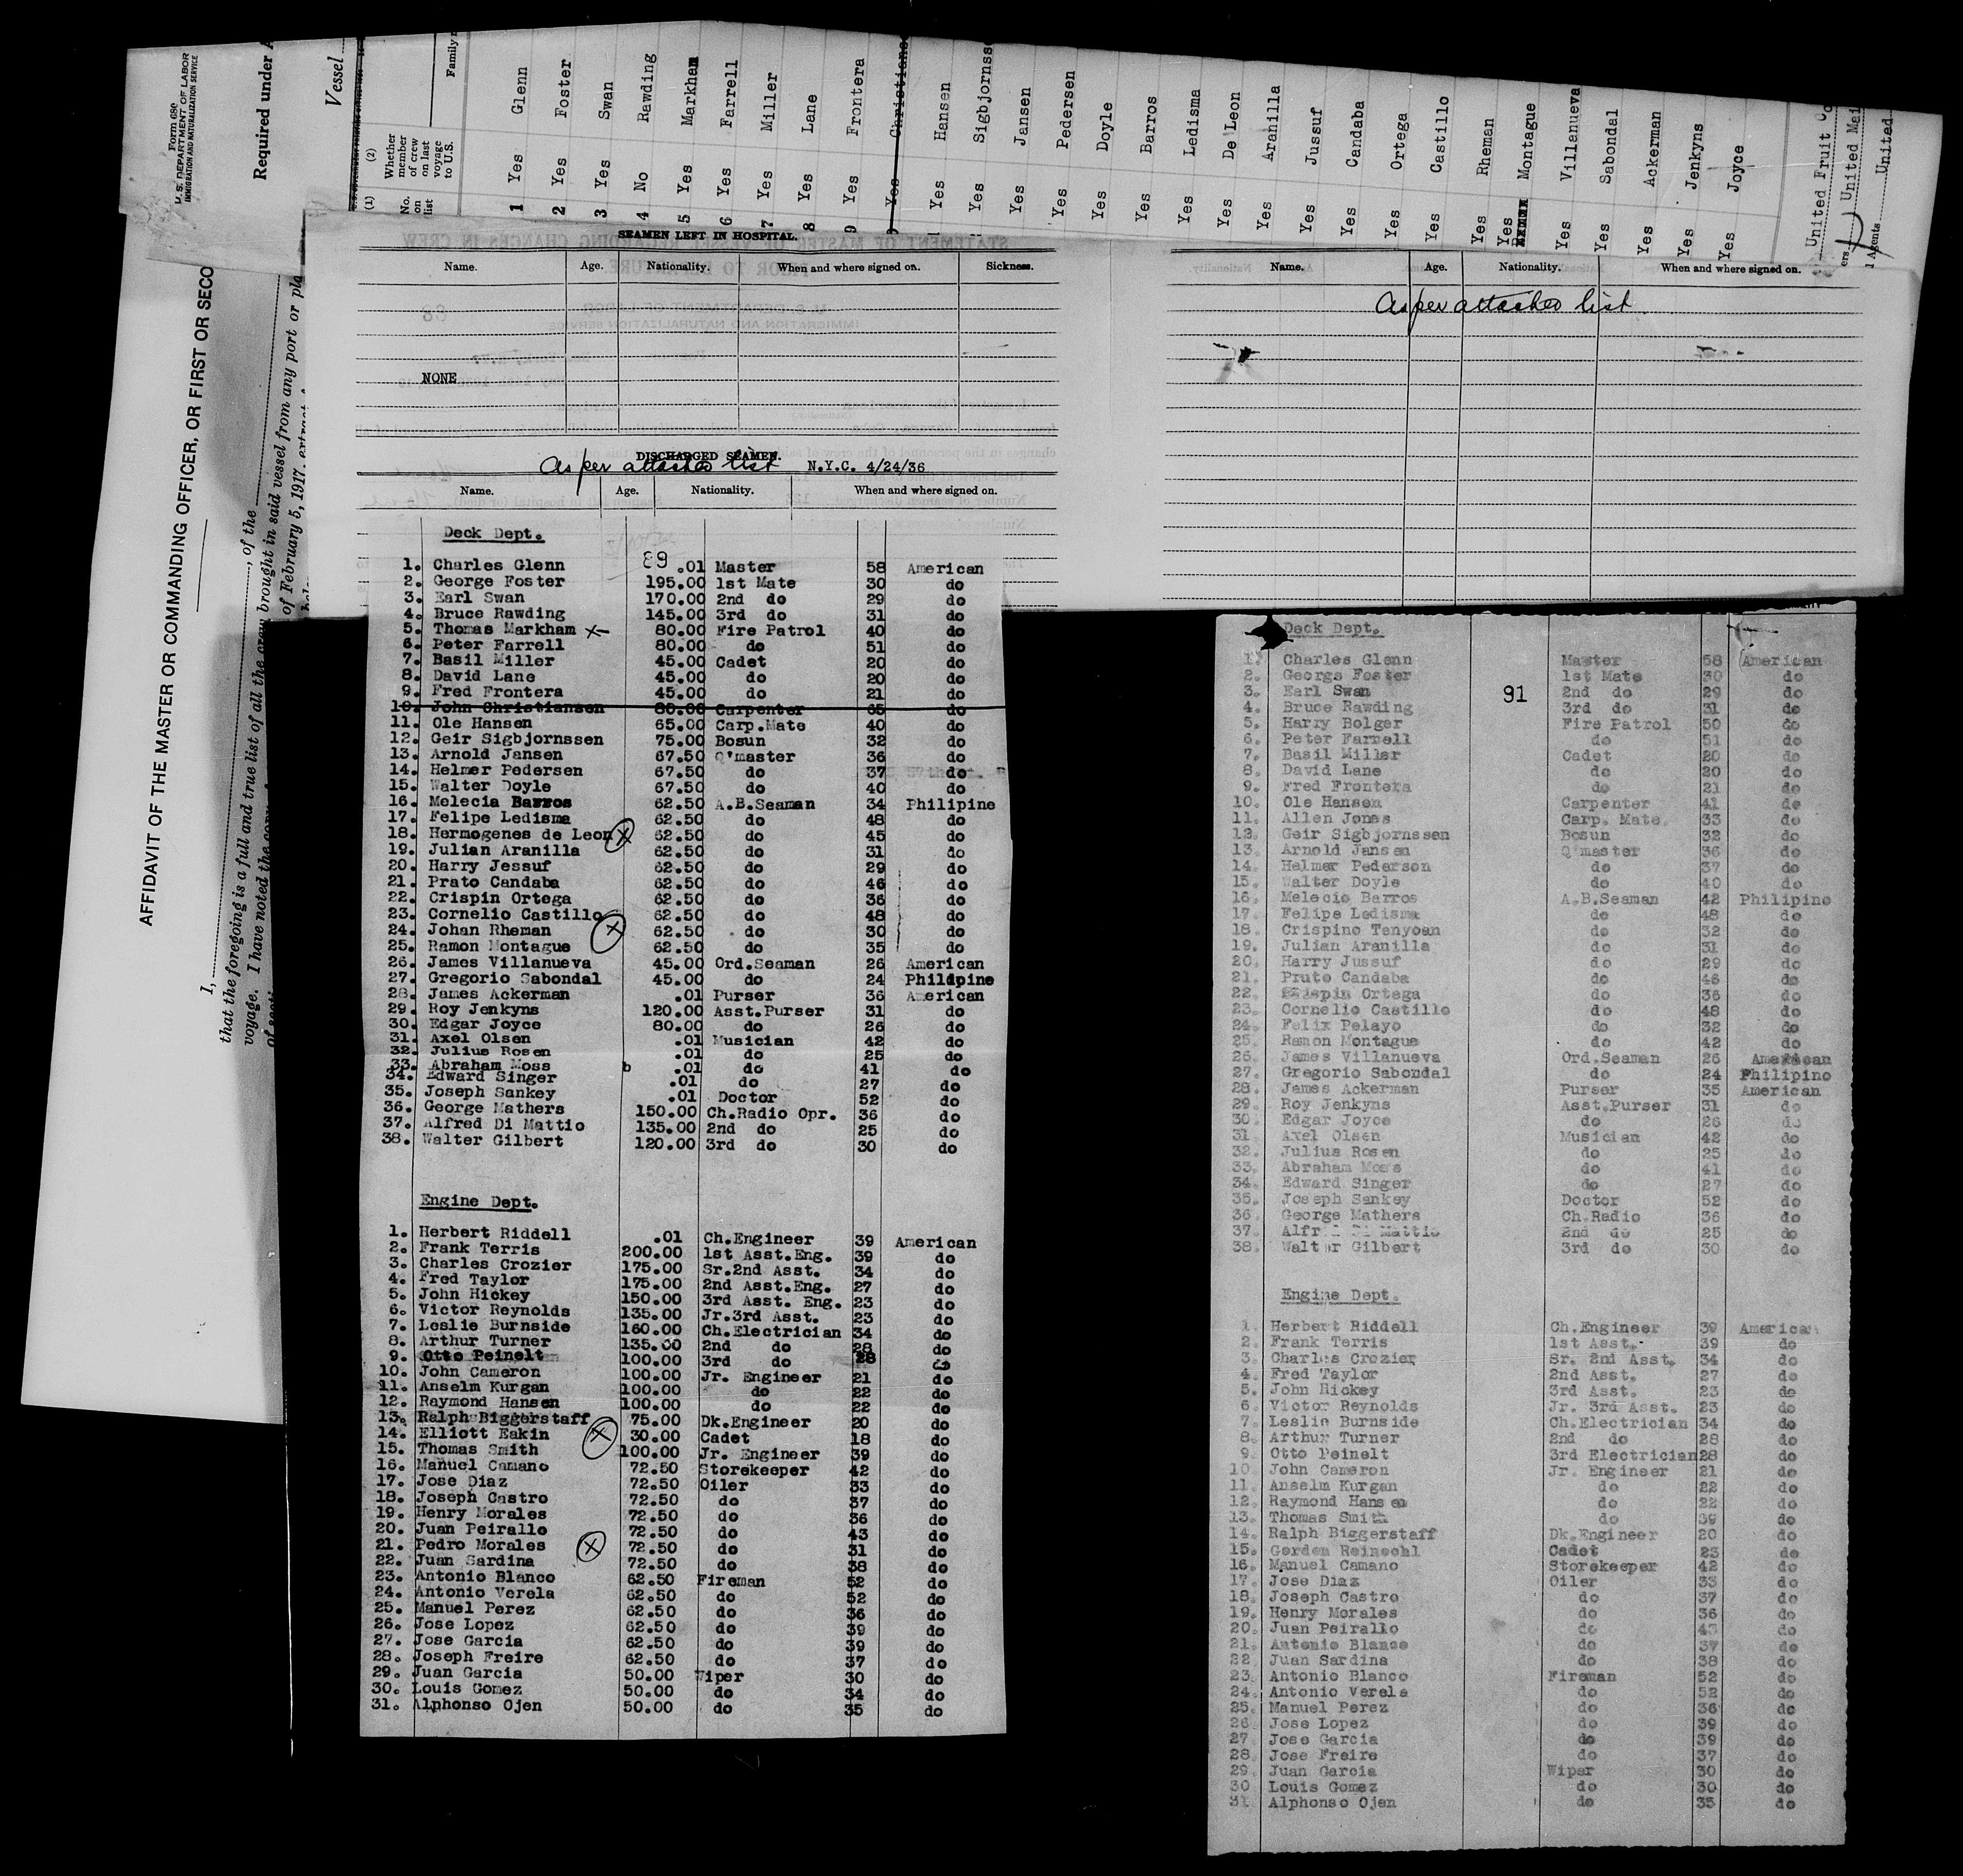 Form 680
U.S. DEPARTMENT OF LABOR
IMMIGRATION AND NATURALIZATION SERVICE
Required under
Vessel
(1) (2)
No. on list
Whether member of crew on last voyage to U.S.
Family
1 Yes Glenn
2 Yes Foster
3 Yes Swan
4 No Rawding
5 Yes Markham
6 Yes Farrell
7 Yes Miller
8 Yes Lane
9 Yes Frontera
Yes Christians
Yes Hansen
Yes Sigbjornss
Yes Jansen
Yes Pedersen
Yes Doyle
Yes Barros
Yes Ledisma
Yes De Leon
Yes Aranilla
Yes Jussuf
Yes Candaba
Yes Ortega
Yes Castillo
Yes Rheman
Yes Montague
Yes Villanueva
Yes Sabondal
Yes Ackerman
Yes Jenkyns
Yes Joyce
United Fruit
United Mai
Agents United
AFFIDAVIT OF THE MASTER OR COMMANDING OFFICER, OR FIRST OR SECO
I, , of the
that the foregoing is a full and true list of all the crew brought in said vessel from any port or pla
voyage. I have noted the
of February 5, 1917,
SEAMEN LEFT IN HOSPITAL.
Name. Age. Nationality. When and where signed on. Sickness.
NONE
DISCHARGED SEAMEN.
As per attached list N.Y.C. 4/24/36
Name. Age. Nationality. When and where signed on.
Deck Dept.
89
1. Charles Glenn .01 Master 58 American
2. George Foster 195.00 1st Mate 30 do
3. Earl Swan 170.00 2nd do 29 do
4. Bruce Rawding 145.00 3rd do 31 do
5. Thomas Markham X 80.00 Fire Patrol 40 do
6. Peter Farrell 80.00 do 51 do
7. Basil Miller 45.00 Cadet 20 do
8. David Lane 45.00 do 20 do
9. Fred Frontera 45.00 do 21 do
10. John Christiansen 80.00 Carpenter 65 do
11. Ole Hansen 65.00 Carp.Mate 40 do
12. Geir Sigbjornssen 75.00 Bosun 32 do
13. Arnold Jansen 67.50 Q'master 36 do
14. Helmer Pedersen 67.50 do 37 do
15. Walter Doyle 67.50 do 40 do
16. Melecia Barros 62.50 A.B.Seaman 34 Philipine
17. Felipe Ledisma 62.50 do 48 do
18. Hermogenes de Leon X 62.50 do 45 do
19. Julian Aranilla 62.50 do 31 do
20. Harry Jessuf 62.50 do 29 do
21. Prato Candaba 62.50 do 46 do
22. Crispin Ortega 62.50 do 36 do
23. Cornelio Castillo 62.50 do 48 do
24. Johan Rheman X 62.50 do 30 do
25. Ramon Montague 62.50 do 35 do
26. James Villanueva 45.00 Ord.Seaman 26 American
27. Gregorio Sabondal 45.00 do 24 Philipine
28. James Ackerman .01 Purser 36 American
29. Roy Jenkyns 120.00 Asst.Purser 31 do
30. Edgar Joyce 80.00 do 26 do
31. Axel Olsen .01 Musician 42 do
32. Julius Rosen .01 do 25 do
33. Abraham Moss .01 do 41 do
34. Edward Singer .01 do 27 do
35. Joseph Sankey .01 Doctor 52 do
36. George Mathers 150.00 Ch.Radio Opr. 36 do
37. Alfred Di Mattio 135.00 2nd do 25 do
38. Walter Gilbert 120.00 3rd do 30 do
Engine Dept.
1. Herbert Riddell .01 Ch.Engineer 39 American
2. Frank Terris 200.00 1st Asst.Eng. 39 do
3. Charles Crozier 175.00 Sr.2nd Asst. 34 do
4. Fred Taylor 175.00 2nd Asst.Eng. 27 do
5. John Hickey 150.00 3rd Asst. Eng. 23 do
6. Victor Reynolds 135.00 Jr.3rd Asst. 23 do
7. Leslie Burnside 160.00 Ch.Electrician 34 do
8. Arthur Turner 135.00 2nd do 28 do
9. Otto Peinelt 100.00 3rd do 28 do
10. John Cameron 100.00 Jr. Engineer 21 do
11. Anselm Kurgan 100.00 do 22 do
12. Raymond Hansen 100.00 do 22 do
13. Ralph Biggerstaff 75.00 Dk.Engineer 20 do
14. Elliott Eakin X 30.00 Cadet 18 do
15. Thomas Smith 100.00 Jr. Engineer 39 do
16. Manuel Camano 72.50 Storekeeper 42 do
17. Jose Diaz 72.50 Oiler 33 do
18. Joseph Castro 72.50 do 37 do
19. Henry Morales 72.50 do 36 do
20. Juan Peirallo 72.50 do 43 do
21. Pedro Morales X 72.50 do 31 do
22. Juan Sardina 72.50 do 38 do
23. Antonio Blanco 62.50 Fireman 52 do
24. Antonio Verela 62.50 do 52 do
25. Manuel Perez 62.50 do 36 do
26. Jose Lopez 62.50 do 39 do
27. Jose Garcia 62.50 do 39 do
28. Joseph Freire 62.50 do 37 do
29. Juan Garcia 50.00 Wiper 30 do
30. Louis Gomez 50.00 do 34 do
31. Alphonso Ojen 50.00 do 35 do
Name. Age. Nationality. When and where signed on.
As per attached list
Deck Dept.
91
1. Charles Glenn Master 58 American
2. George Foster 1st Mate 30 do
3. Earl Swan 2nd do 29 do
4. Bruce Rawding 3rd do 31 do
5. Harry Bolger Fire Patrol 50 do
6. Peter Farrell do 51 do
7. Basil Miller Cadet 20 do
8. David Lane do 20 do
9. Fred Frontera do 21 do
10. Ole Hansen Carpenter 41 do
11. Allen Jones Carp. Mate. 33 do
12. Geir Sigbjornssen Bosun 32 do
13. Arnold Jansen Q'master 36 do
14. Helmer Pederson do 37 do
15. Walter Doyle do 40 do
16. Melecio Barros A.B.Seaman 42 Philipino
17. Felipe Ledisma do 48 do
18. Crispino Tenyoan do 32 do
19. Julian Aranilla do 31 do
20. Harry Jussuf do 29 do
21. Pruto Candaba do 46 do
22. Crispin Ortega do 36 do
23. Cornelio Castillo do 48 do
24. Felix Pelayo do 32 do
25. Ramon Montague do 42 do
26. James Villanueva Ord.Seaman 26 American
27. Gregorio Sabondal do 24 Philipino
28. James Ackerman Purser 35 American
29. Roy Jenkyns Asst.Purser 31 do
30. Edgar Joyce do 26 do
31. Axel Olsen Musician 42 do
32. Julius Rosen do 25 do
33. Abraham Moss do 41 do
34. Edward Singer do 27 do
35. Joseph Sankey Doctor 52 do
36. George Mathers Ch.Radio 36 do
37. Alfr Di Mattio 2nd do 25 do
38. Walter Gilbert 3rd do 30 do
Engine Dept.
1. Herbert Riddell Ch.Engineer 39 American
2. Frank Terris 1st Asst. 39 do
3. Charles Crozier Sr. 2nd Asst. 34 do
4. Fred Taylor 2nd Asst. 27 do
5. John Hickey 3rd Asst. 23 do
6. Victor Reynolds Jr. 3rd Asst. 23 do
7. Leslie Burnside Ch.Electrician 34 do
8. Arthur Turner 2nd do 28 do
9. Otto Peinelt 3rd Electrician 28 do
10. John Cameron Jr. Engineer 21 do
11. Anselm Kurgan do 22 do
12. Raymond Hansen do 22 do
13. Thomas Smith do 39 do
14. Ralph Biggerstaff Dk.Engineer 20 do
15. Gordon Reinoehl Cadet 23 do
16. Manuel Camano Storekeeper 42 do
17. Jose Diaz Oiler 33 do
18. Joseph Castro do 37 do
19. Henry Morales do 36 do
20. Juan Peirallo do 43 do
21. Antonio Blanco do 37 do
22. Juan Sardina do 38 do
23. Antonio Blanco Fireman 52 do
24. Antonio Verela do 52 do
25. Manuel Perez do 36 do
26. Jose Lopez do 39 do
27. Jose Garcia do 39 do
28. Jose Freire do 37 do
29. Juan Garcia Wiper 30 do
30. Louis Gomez do 30 do
31. Alphonso Ojen do 35 do